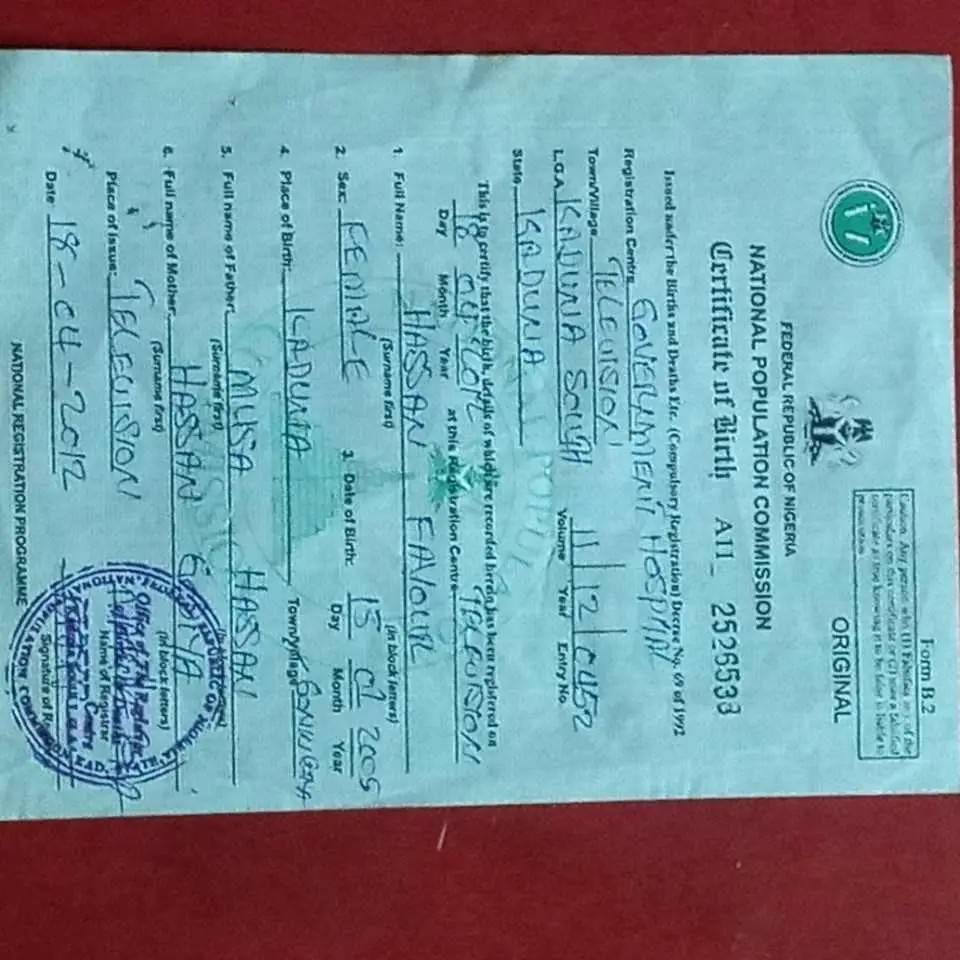 Form B.2
Caution: Any person who (1) Falsifies any of the
particulars on this certificate or (2) uses a falsified
certificate as true knowing it to be false is liable to
prosecution
ORIGINAL
FEDERAL REPUBLIC OF NIGERIA
NATIONAL POPULATION COMMISSION
Certificate of Birth A11_ 2526533
Issued under the Births and Deaths Etc. (Compulsory Registration) Decree No. 69 of 1992
Registration Centre GOVERNMENT HOSPITAL
Town/Village TELEVISION
L.G.A KADUNA SOUTH 11/12/0452
Volume Year Entry No.
State KADUNA
This is to certify that the birth, details of which are recorded herein has been registered on
18 04 2012 at this Registration Centre TELEVISION
Day Month Year
1. Full Name: HASSAN FAVOUR
(Surname first) (In block letters)
2. Sex: FEMALE 3. Date of Birth: 15 01 2005
Day Month Year
4. Place of Birth: KADUNA Town/Village
5. Full name of Father: MUSA HASSAN
(Surname first)
6. Full name of Mother: HASSAN
(Surname first) (In block letters)
Place of Issue: TELEVISION
Name of Registrar
Date 18-04-2012
Signature of
NATIONAL REGISTRATION PROGRAMME